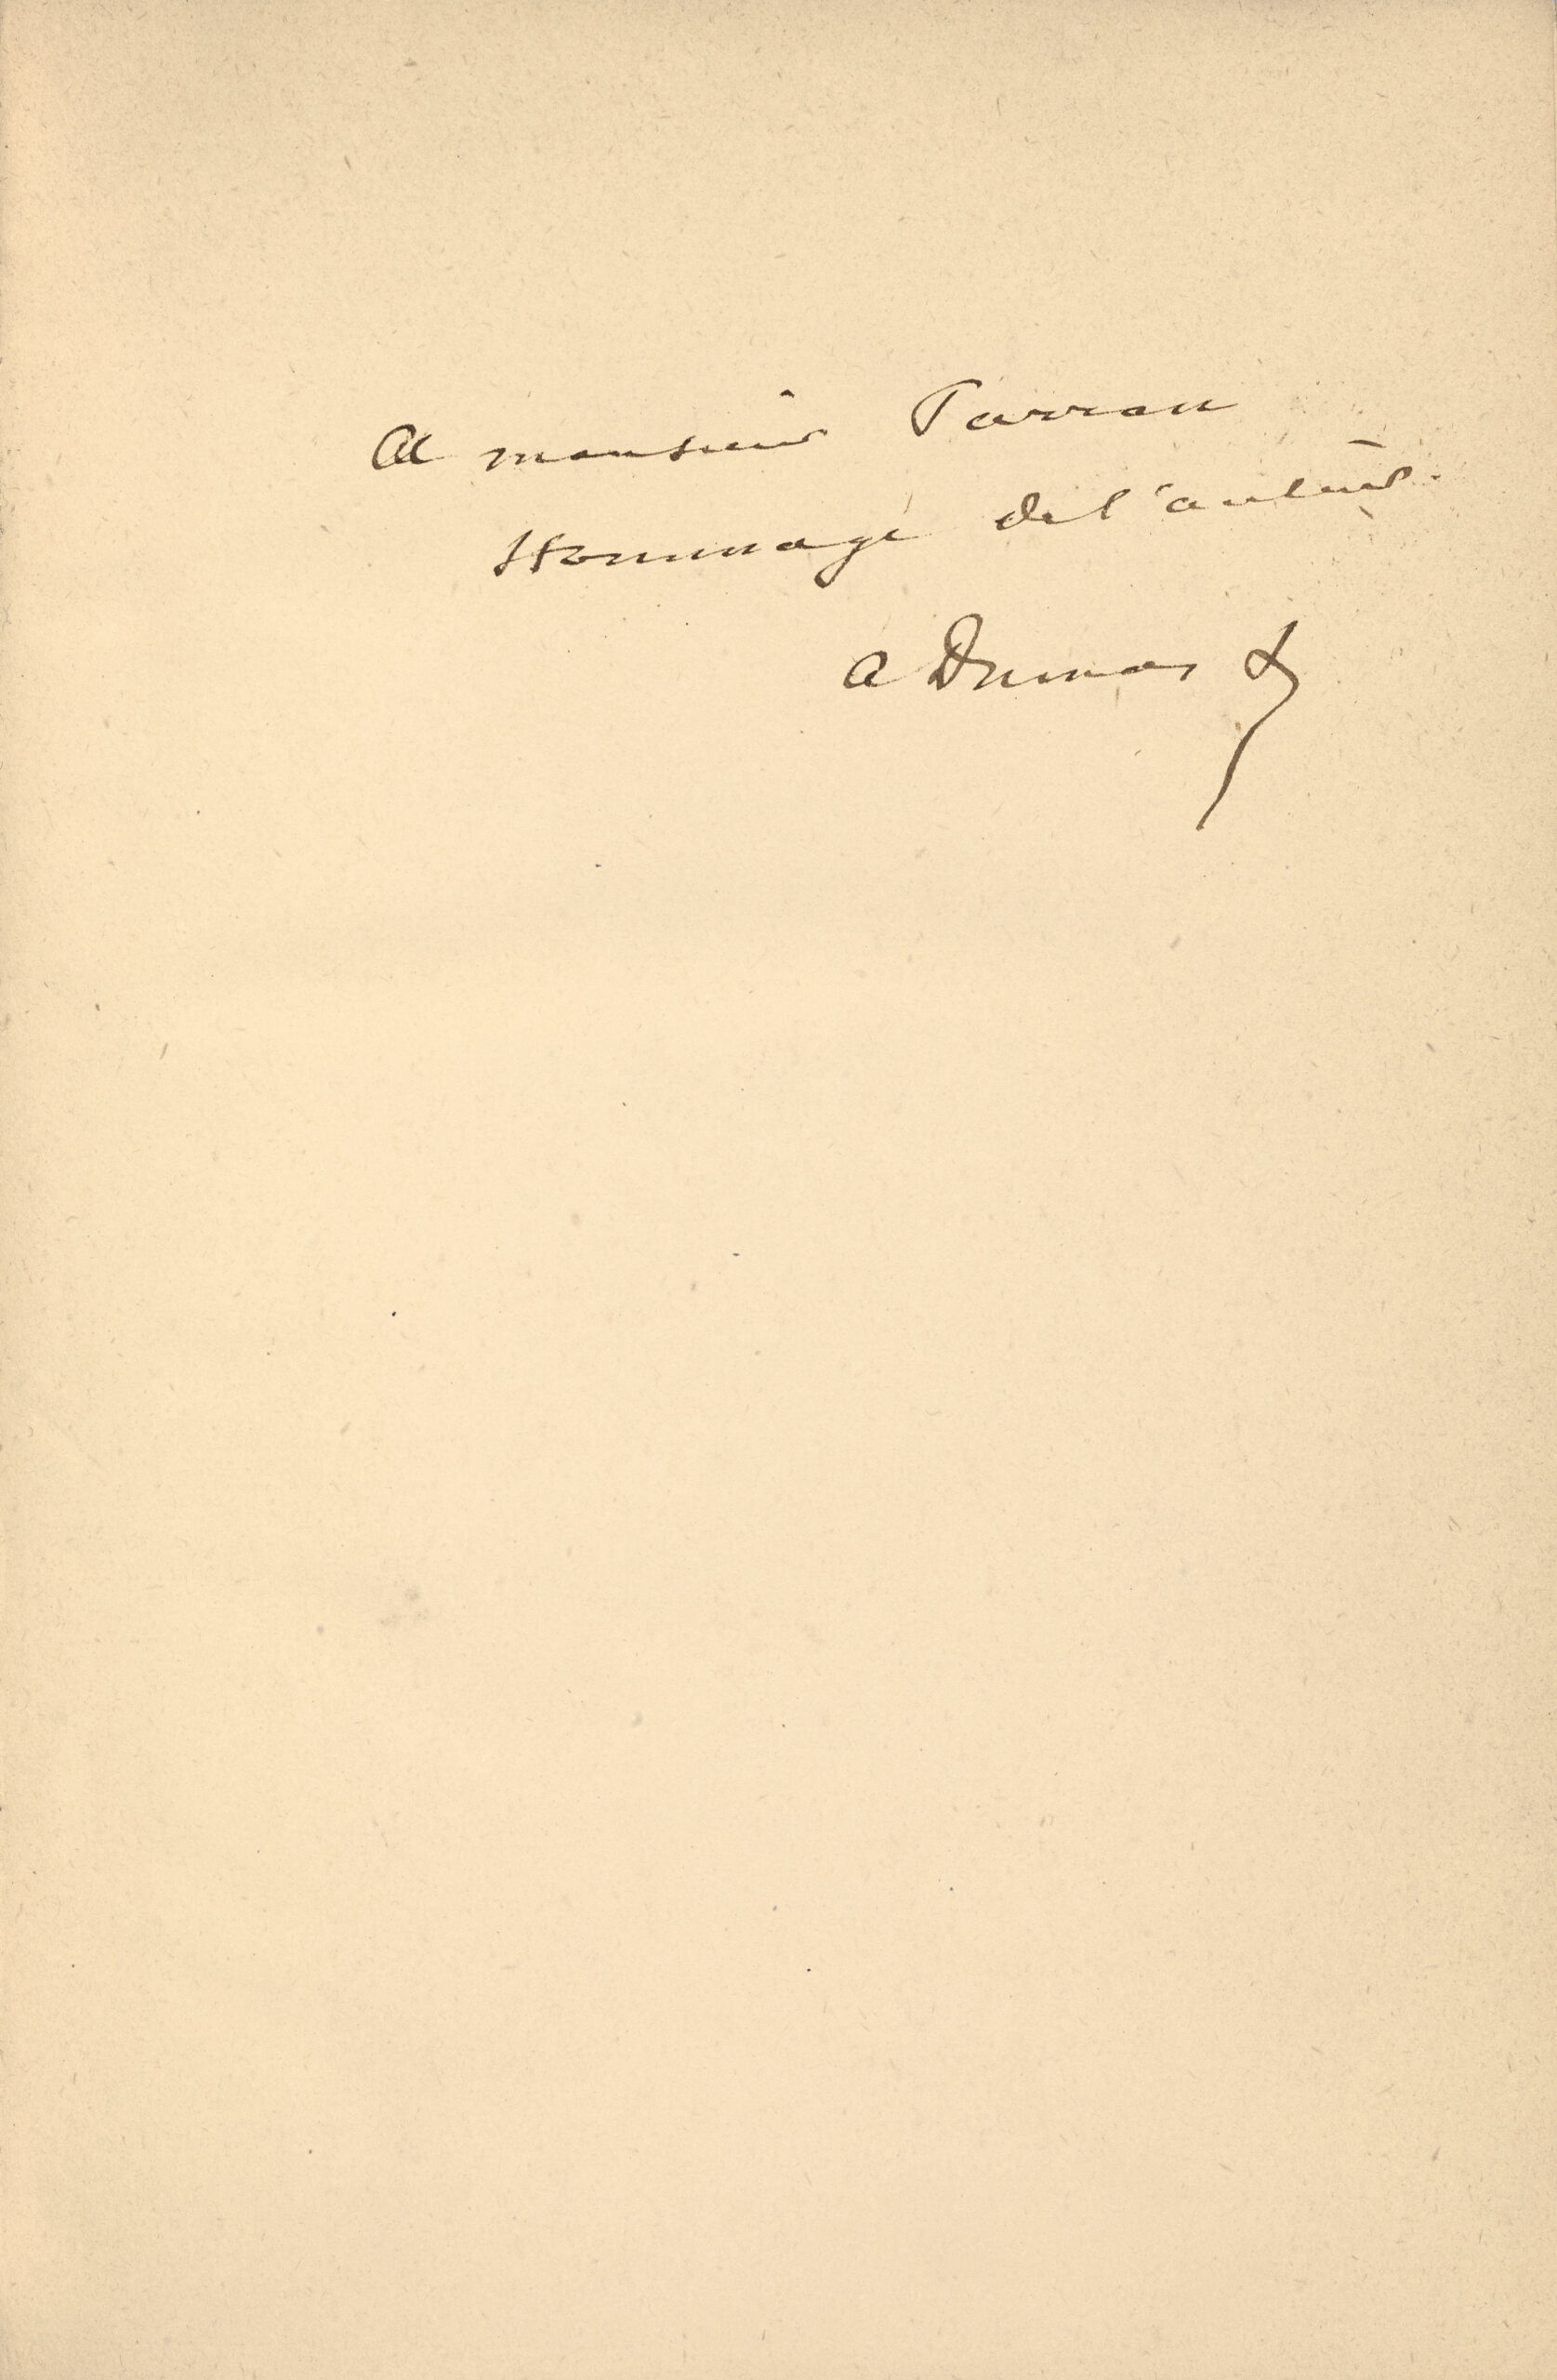 A monsieur Parran
Hommage de l'auteur.
A Dumas f